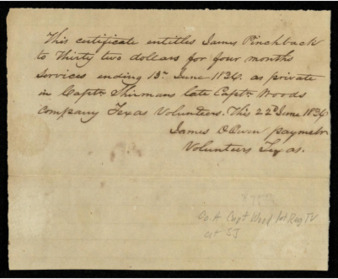 This certificate entitles James Pinchback
to Thirty two dollars for four months
Services ending 13th June 1836. as private
in Captn Thirmans late Captn Woods
Company Texas Volunteers. This 22d June 1836
James Owen paymstr
Volunteers Texas.
Co A Capt Wood 1st Reg TV